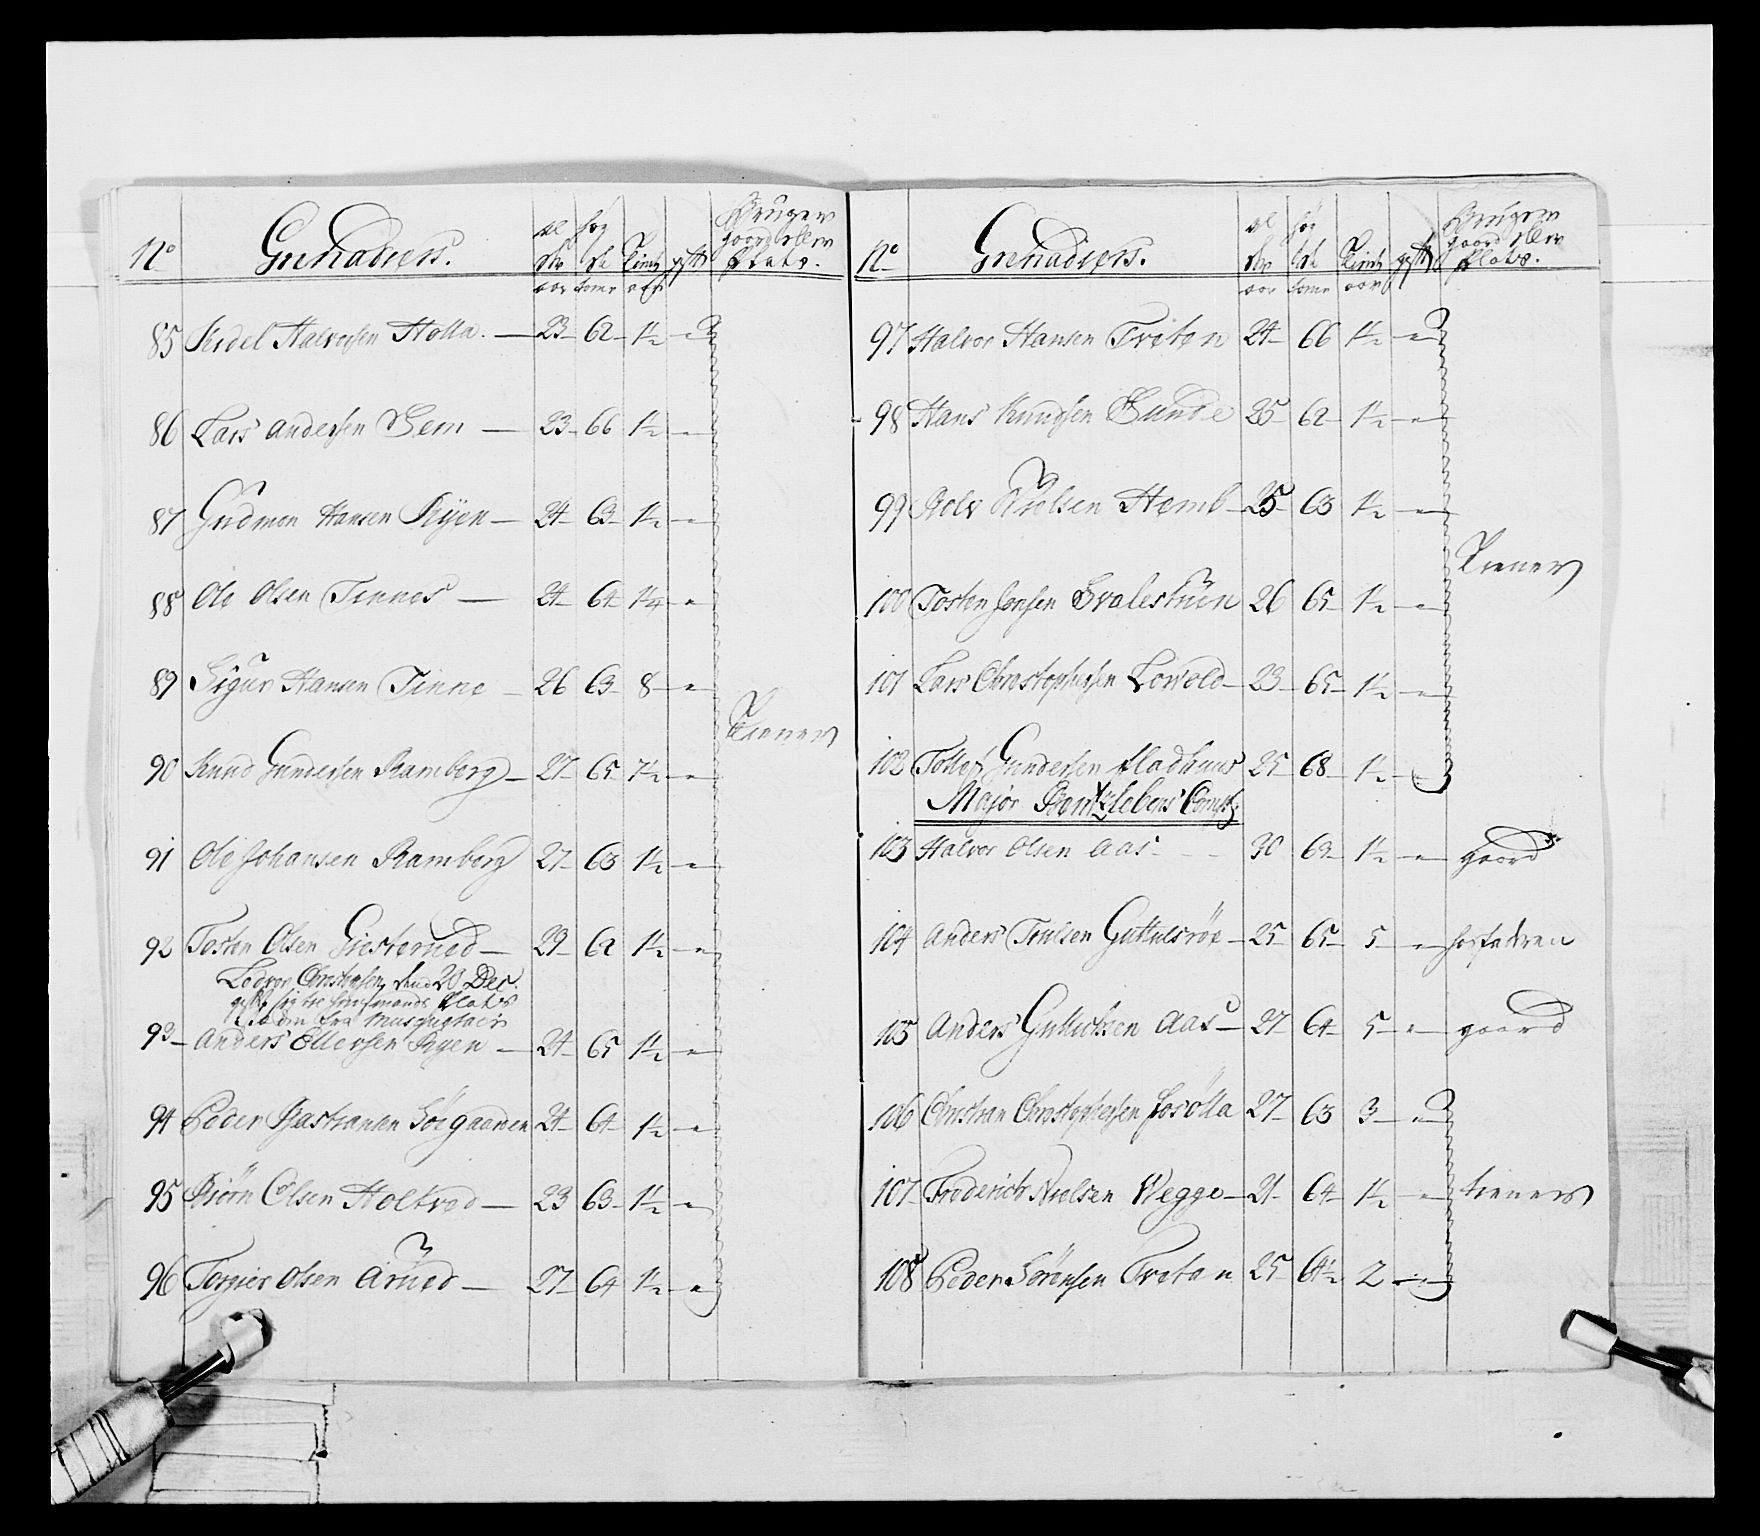 No Grenadiers. al der aar høy de tomr Tient aar gift Bruger gaard eller Plats.
85 Kedel Halvorsen Holla. — 23 62 1½ —
86 Lars Andersen Sem — 23 66 1½ —
87 Gudmon Hansen Ryen — 24 63 1½ —
88 Ole Olsen Tinnes — 24 64 1¼
89 Sigur Hansen Tinne — 26 63 8 —
Tiener
90 Knud Gundersen Ramberg — 27 65 7½ —
91 Ole Johansen Ramberg 27 63 1½ —
92 Tosten Olsen Giesterued — 29 62 1½ —
Ledvor Christensen, den 20 Dec.
Plats
fra Musquetair
93 Anders Ellersen Ryen — 24 65 1½ —
94 Peder Bastiansen Sörgaarden 24 64 1½ —
95 Biörn Olsen Holtved — 23 63 1½ —
96 Torgier Olsen Arued — 27 64 1½ —
No Grenadiers. al der aar høy de tomr Tient aar gift Bruger gaard eller Plats.
97 Halvor Hansen Tveten 24 66 1½ —
98 Hans Knudsen Sunde 25 62 1½ —
99 Rolv Nielsen Hemb — 25 63 1½ —
Tiener
100 Tosten Jonsen Svalestuen 26 65 1½ —
101 Lars Christophersen Lovold — 23 65 1½ —
102 Tollef Gundersen Fladhuus 25 68 1½ —
Major Comp:
103 Halvor Olsen Aas - - 30 62 1½ — gaard
104 Anders Truelsen Guttulsröe — 25 65 5 — hos faderen
105 Anders Gullichsen Aas — 27 64 5 — gaard
106 Christian Christophersen Fosölla 27 63 3 —
107 Friderich Nielsen Wegge — 21 64 1½ — tiener
108 Peder Sörensen Tvetan 25 64½ 2 —